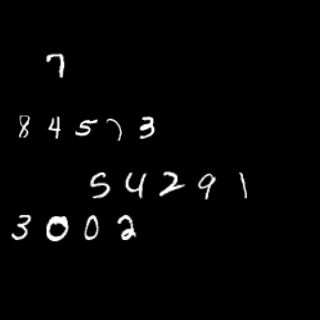 7
84573
54291
3002